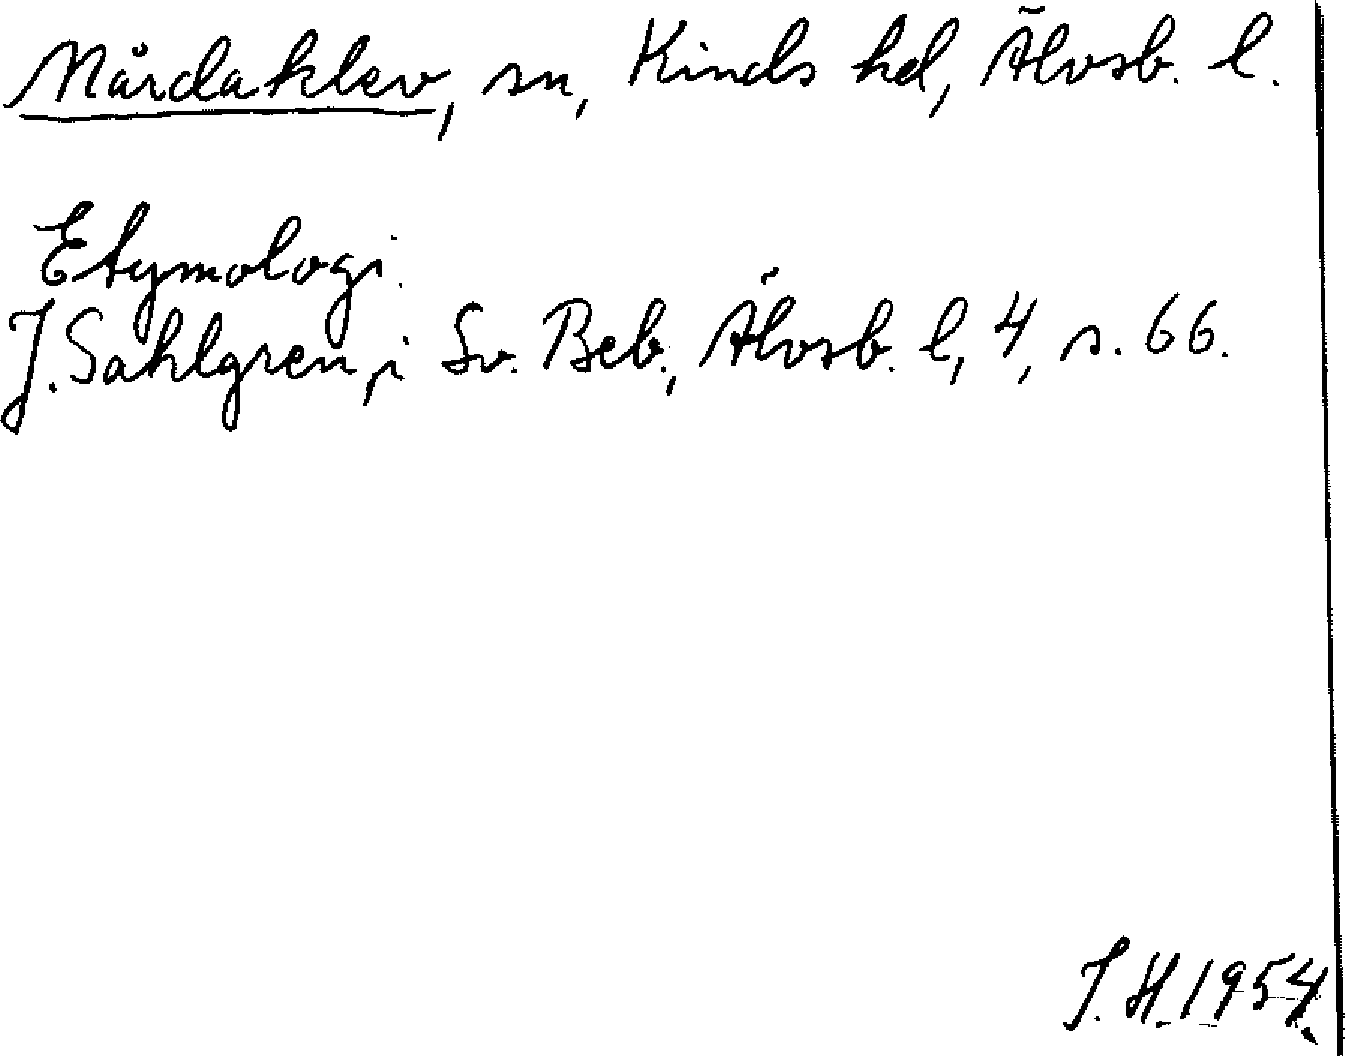 Mårdaklev, sn, Kinds hd, Älvsb. l.
Etymologi.
J. Sahlgren, i Sv. Beb., Älvsb. l, 4, s. 66.
J. H. 1954.